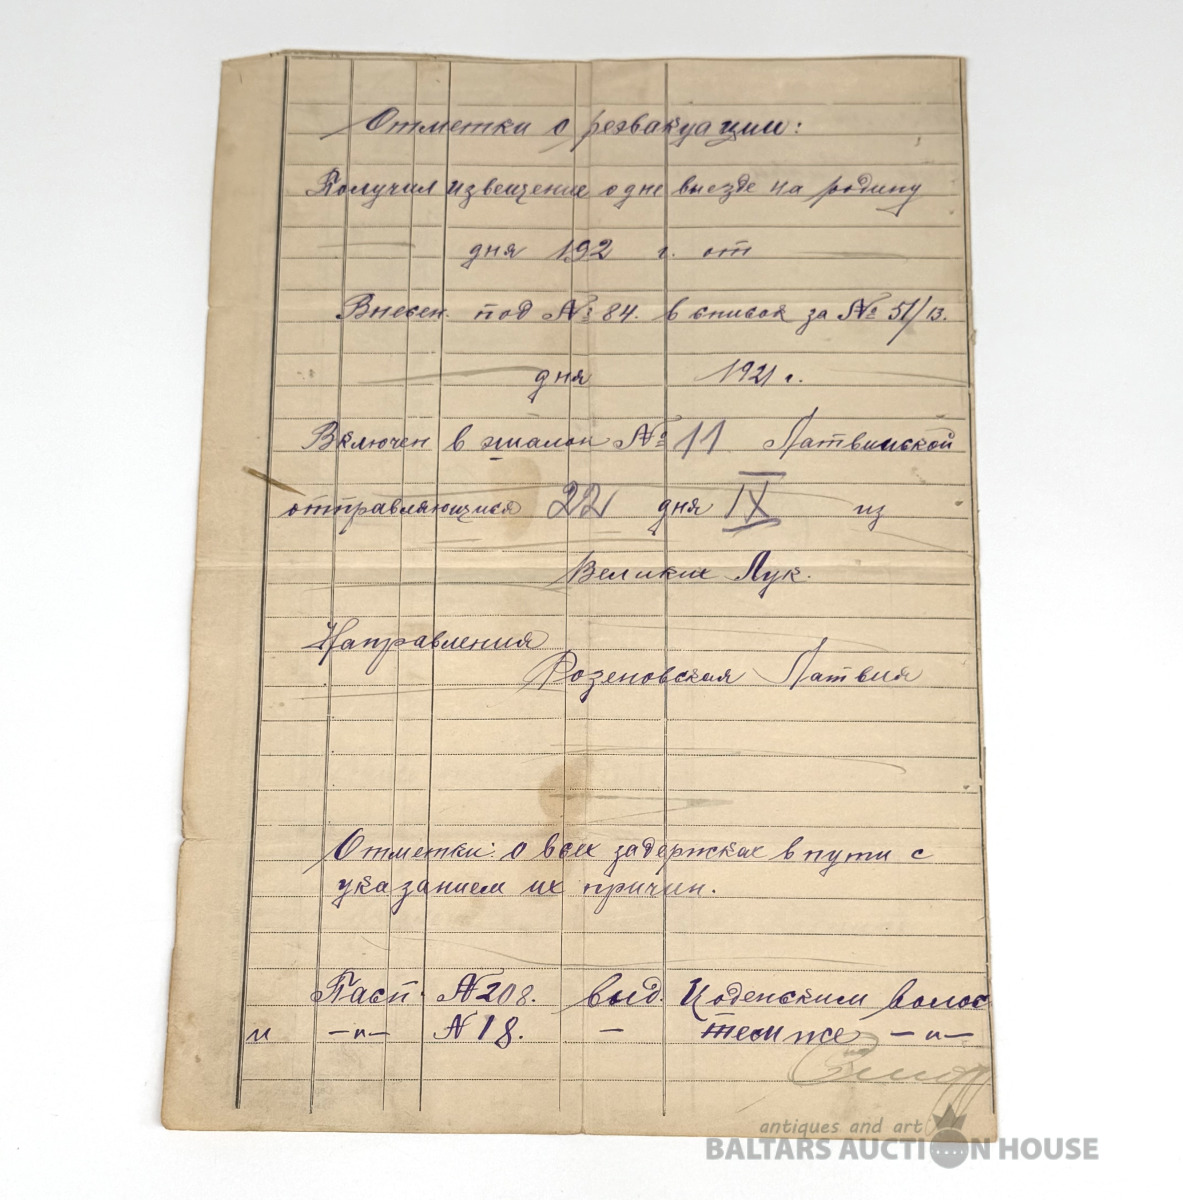 Отметки о реэвакуации:
Получил извещение о дне выезде на родину
дня 192 г. от
Внесен. под № 84. в список за № 51/13.
дня 1921 г.
Включен в эшалон № 11 Латвийской
отправляющися 22 дня IX из
Великих Лук.
Направления
Розеновская Латвия
Отметки: о всех задержках в пути с
указанием их причин.
Пасп. № 208. выд. Цоденским волос
и —„— № 18. — тем же —„—
antiques and art
BALTARS AUCTION HOUSE